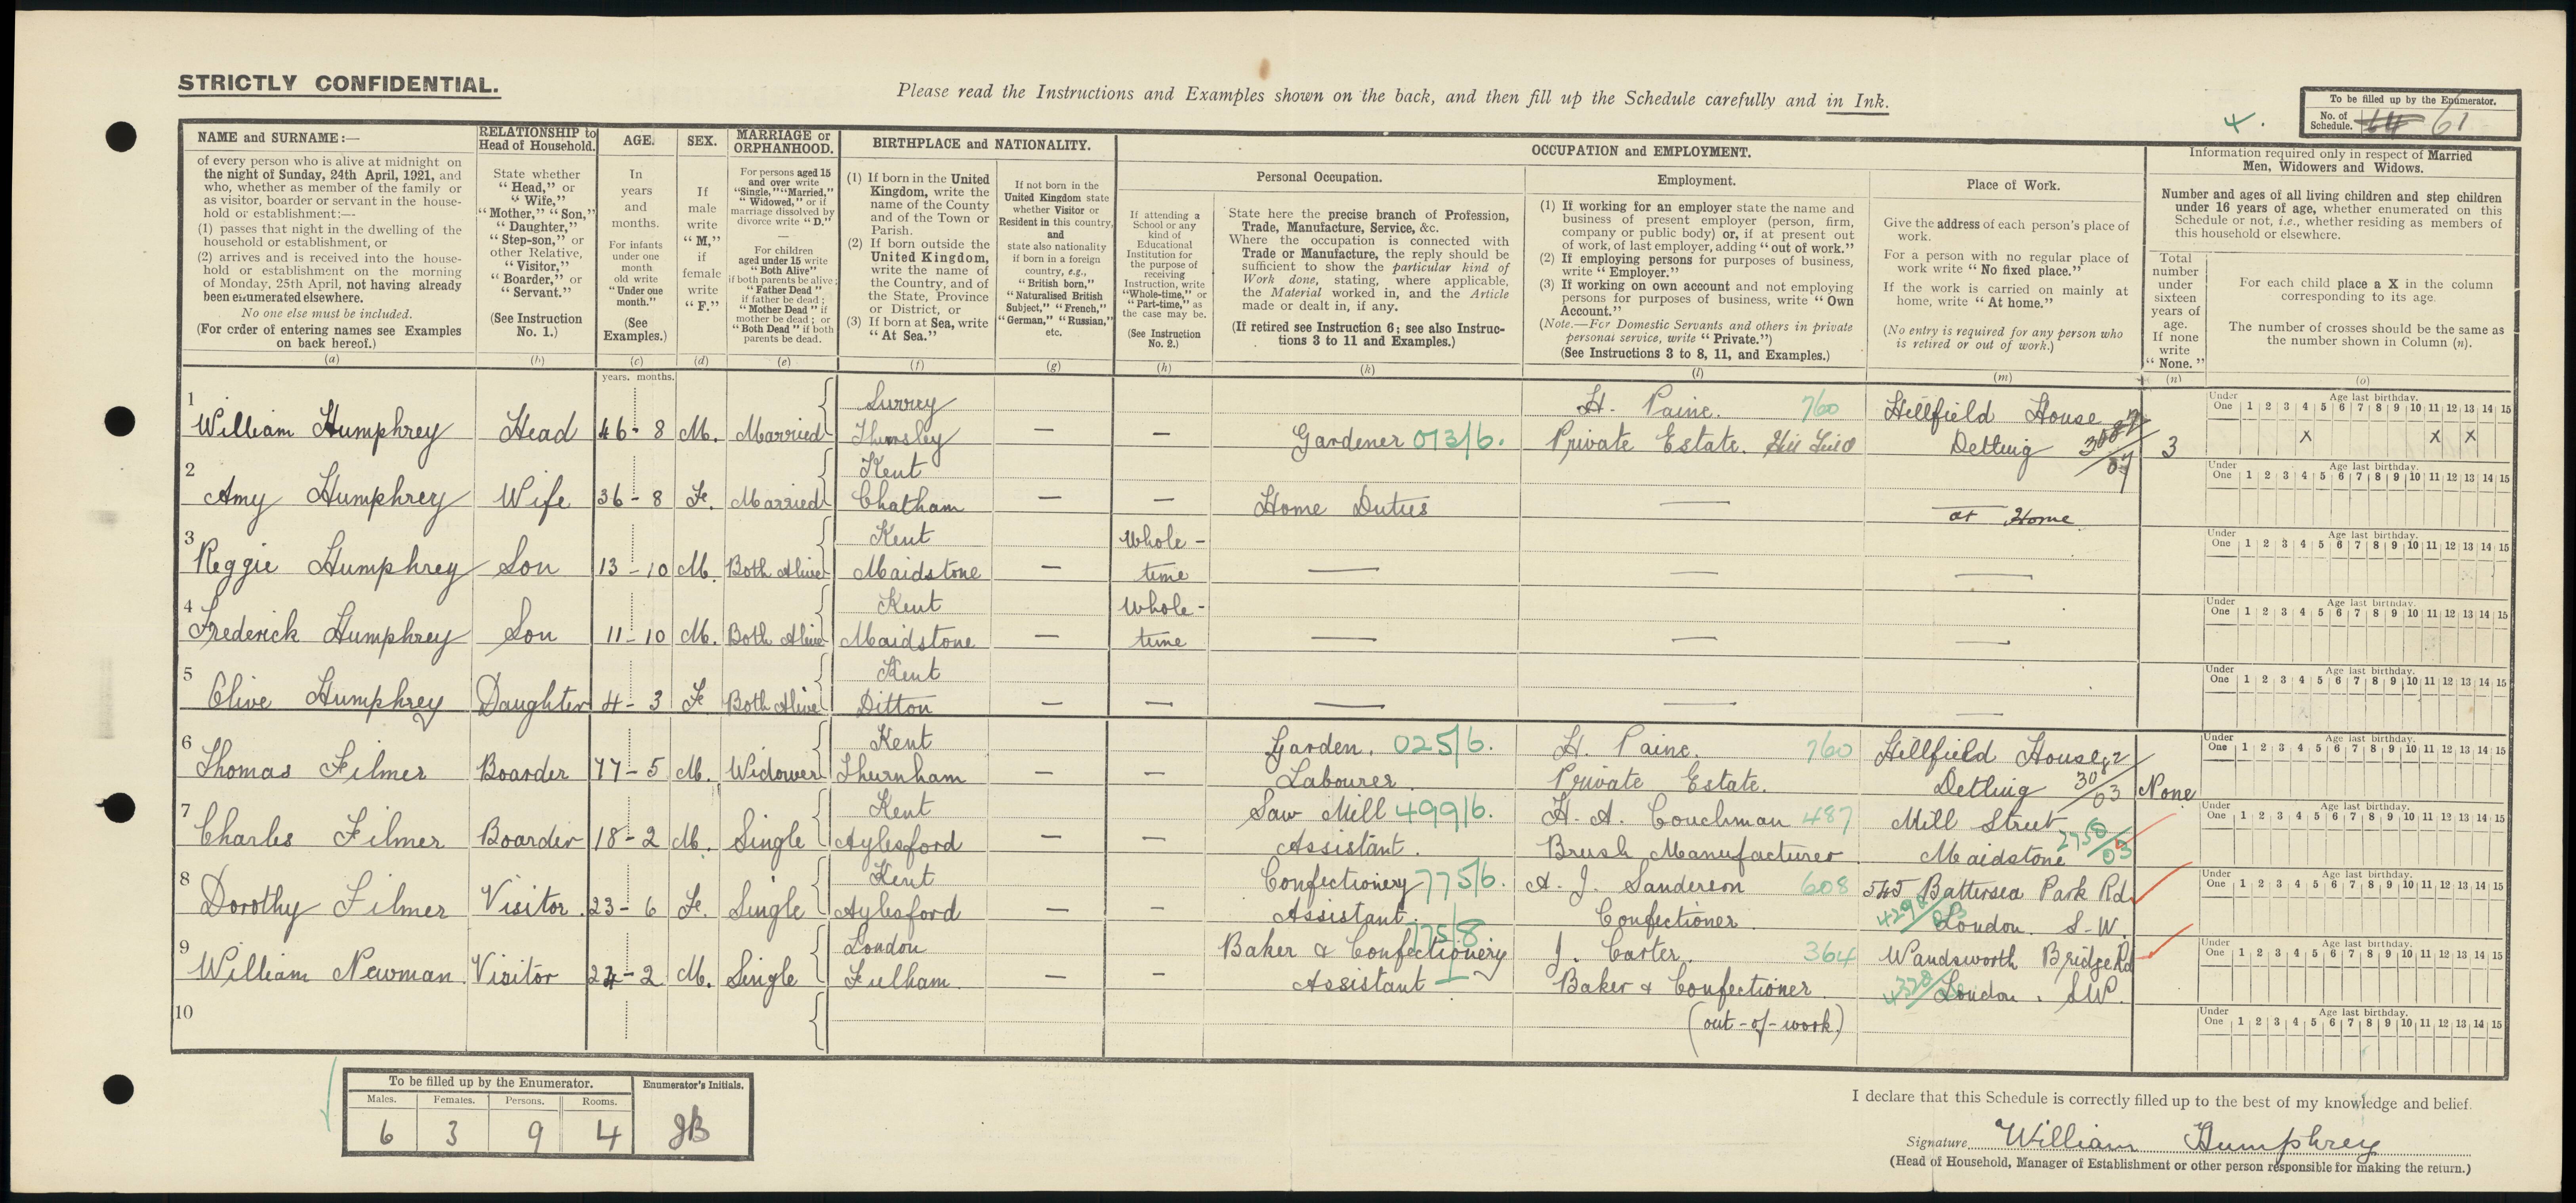 STRICTLY CONFIDENTIAL.
Please read the Instructions and Examples shown on the back, and then fill up the Schedule carefully and in Ink.
To be filled up by the Enumerator.
No. of Schedule. 64 61
4.
NAME and SURNAME:—
of every person who is alive at midnight on
the night of Sunday, 24th April, 1921, and
who, whether as member of the family or
as visitor, boarder or servant in the house-
hold or establishment:—
(1) passes that night in the dwelling of the
household or establishment, or
(2) arrives and is received into the house-
hold or establishment on the morning
of Monday, 25th April, not having already
been enumerated elsewhere.
No one else must be included.
(For order of entering names see Examples
on back hereof.)
(a)
RELATIONSHIP to
Head of Household.
State whether
"Head," or
"Wife,"
"Mother," "Son,"
"Daughter,"
"Step-son," or
other Relative,
"Visitor,"
"Boarder," or
"Servant."
(See Instruction
No. 1.)
(b)
AGE.
In
years
and
months.
For infants
under one
month
old write
"Under one
month."
(See
Examples.)
(c)
years. months.
SEX.
If
male
write
"M,"
if
female
write
"F."
(d)
MARRIAGE or
ORPHANHOOD.
For persons aged 15
and over write
"Single," "Married,"
"Widowed," or if
marriage dissolved by
divorce write "D."
For children
aged under 15 write
"Both Alive"
if both parents be alive;
"Father Dead"
if father be dead;
"Mother Dead" if
mother be dead; or
"Both Dead" if both
parents be dead.
(e)
BIRTHPLACE and NATIONALITY.
(1) If born in the United
Kingdom, write the
name of the County
and of the Town or
Parish.
(2) If born outside the
United Kingdom,
write the name of
the Country, and of
the State, Province
or District, or
(3) If born at Sea, write
"At Sea."
(f)
If not born in the
United Kingdom state
whether Visitor or
Resident in this country,
and
state also nationality
if born in a foreign
country, e.g.,
"British born,"
"Naturalised British
Subject," "French,"
"German," "Russian,"
etc.
(g)
OCCUPATION and EMPLOYMENT.
If attending a
School or any
kind of
Educational
Institution for
the purpose of
receiving
Instruction, write
"Whole-time," or
"Part-time," as
the case may be.
(See Instruction
No. 2.)
(h)
Personal Occupation.
State here the precise branch of Profession,
Trade, Manufacture, Service, &c.
Where the occupation is connected with
Trade or Manufacture, the reply should be
sufficient to show the particular kind of
Work done, stating, where applicable,
the Material worked in, and the Article
made or dealt in, if any.
(If retired see Instruction 6; see also Instruc-
tions 3 to 11 and Examples.)
(k)
Employment.
(1) If working for an employer state the name and
business of present employer (person, firm,
company or public body) or, if at present out
of work, of last employer, adding "out of work."
(2) If employing persons for purposes of business,
write "Employer."
(3) If working on own account and not employing
persons for purposes of business, write "Own
Account."
(Note.—For Domestic Servants and others in private
personal service, write "Private.")
(See Instructions 3 to 8, 11, and Examples.)
(l)
Place of Work.
Give the address of each person's place of
work.
For a person with no regular place of
work write "No fixed place."
If the work is carried on mainly at
home, write "At home."
(No entry is required for any person who
is retired or out of work.)
(m)
Information required only in respect of Married
Men, Widowers and Widows.
Number and ages of all living children and step children
under 16 years of age, whether enumerated on this
Schedule or not, i.e., whether residing as members of
this household or elsewhere.
Total
number
under
sixteen
years of
age.
If none
write
"None."
(n)
For each child place a X in the column
corresponding to its age.
The number of crosses should be the same as
the number shown in Column (n).
(o)
Under One 1 2 3 4 5 6 7 8 9 10 11 12 13 14 15
Age last birthday.
1 William Humphrey Head 46-8 M. Married Surrey Thursley — — Gardener 013/6. H. Paine. 760 Private Estate. Hillfield House Detling 3 X X X
2 Amy Humphrey Wife 36-8 Fe. Married Kent Chatham — — Home Duties — at Home
3 Reggie Humphrey Son 13-10 M. Both Alive Kent Maidstone — Whole-time — — —
4 Frederick Humphrey Son 11-10 M. Both Alive Kent Maidstone — Whole-time — — —
5 Olive Humphrey Daughter 4-3 Fe Both Alive Kent Ditton — — — — —
6 Thomas Filmer Boarder 77-5 M. Widower Kent Thurnham — — Garden. 025/6. Labourer. H. Paine. 760 Private Estate. Hillfield House Detling 3082/03 None
7 Charles Filmer Boarder 18-2 M. Single Kent Aylesford — — Saw Mill 499/6. Assistant. H. A. Couchman 487 Brush Manufacturer Mill Street Maidstone
8 Dorothy Filmer Visitor. 23-6 Fe. Single Kent Aylesford — — Confectionery 775/6. Assistant. A. J. Sanderson 608 Confectioner. 545 Battersea Park Rd London. S.W.
9 William Newman. Visitor 24-2 M. Single London Fulham. — — Baker & Confectionery Assistant 175/8 J. Carter. 364 Baker & Confectioner. (out-of-work.) Wandsworth Bridge Rd London. SW.
10
To be filled up by the Enumerator.
Enumerator's Initials.
Males. Females. Persons. Rooms.
6 3 9 4 JB
I declare that this Schedule is correctly filled up to the best of my knowledge and belief.
Signature William Humphrey
(Head of Household, Manager of Establishment or other person responsible for making the return.)